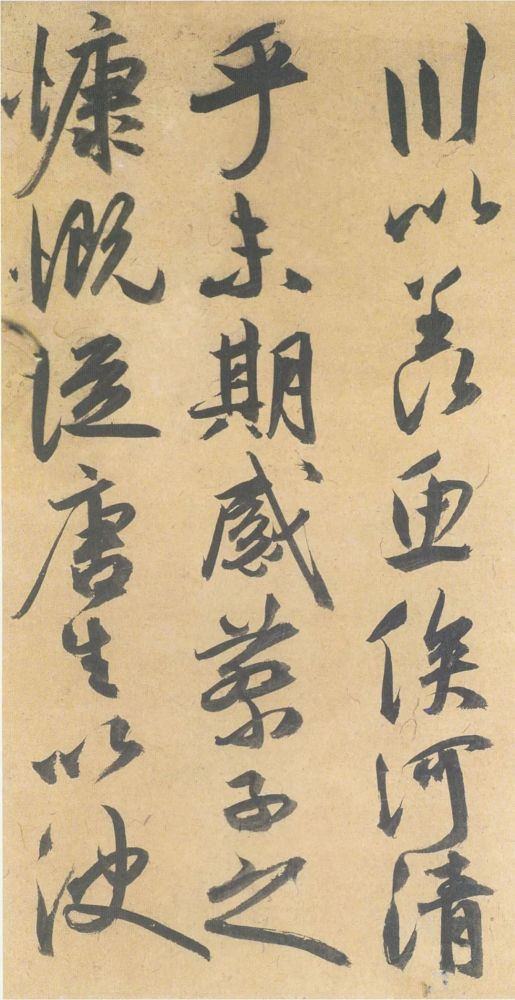 川以羡魚俟河清
乎未期感蔡子之
慷慨從唐生以決